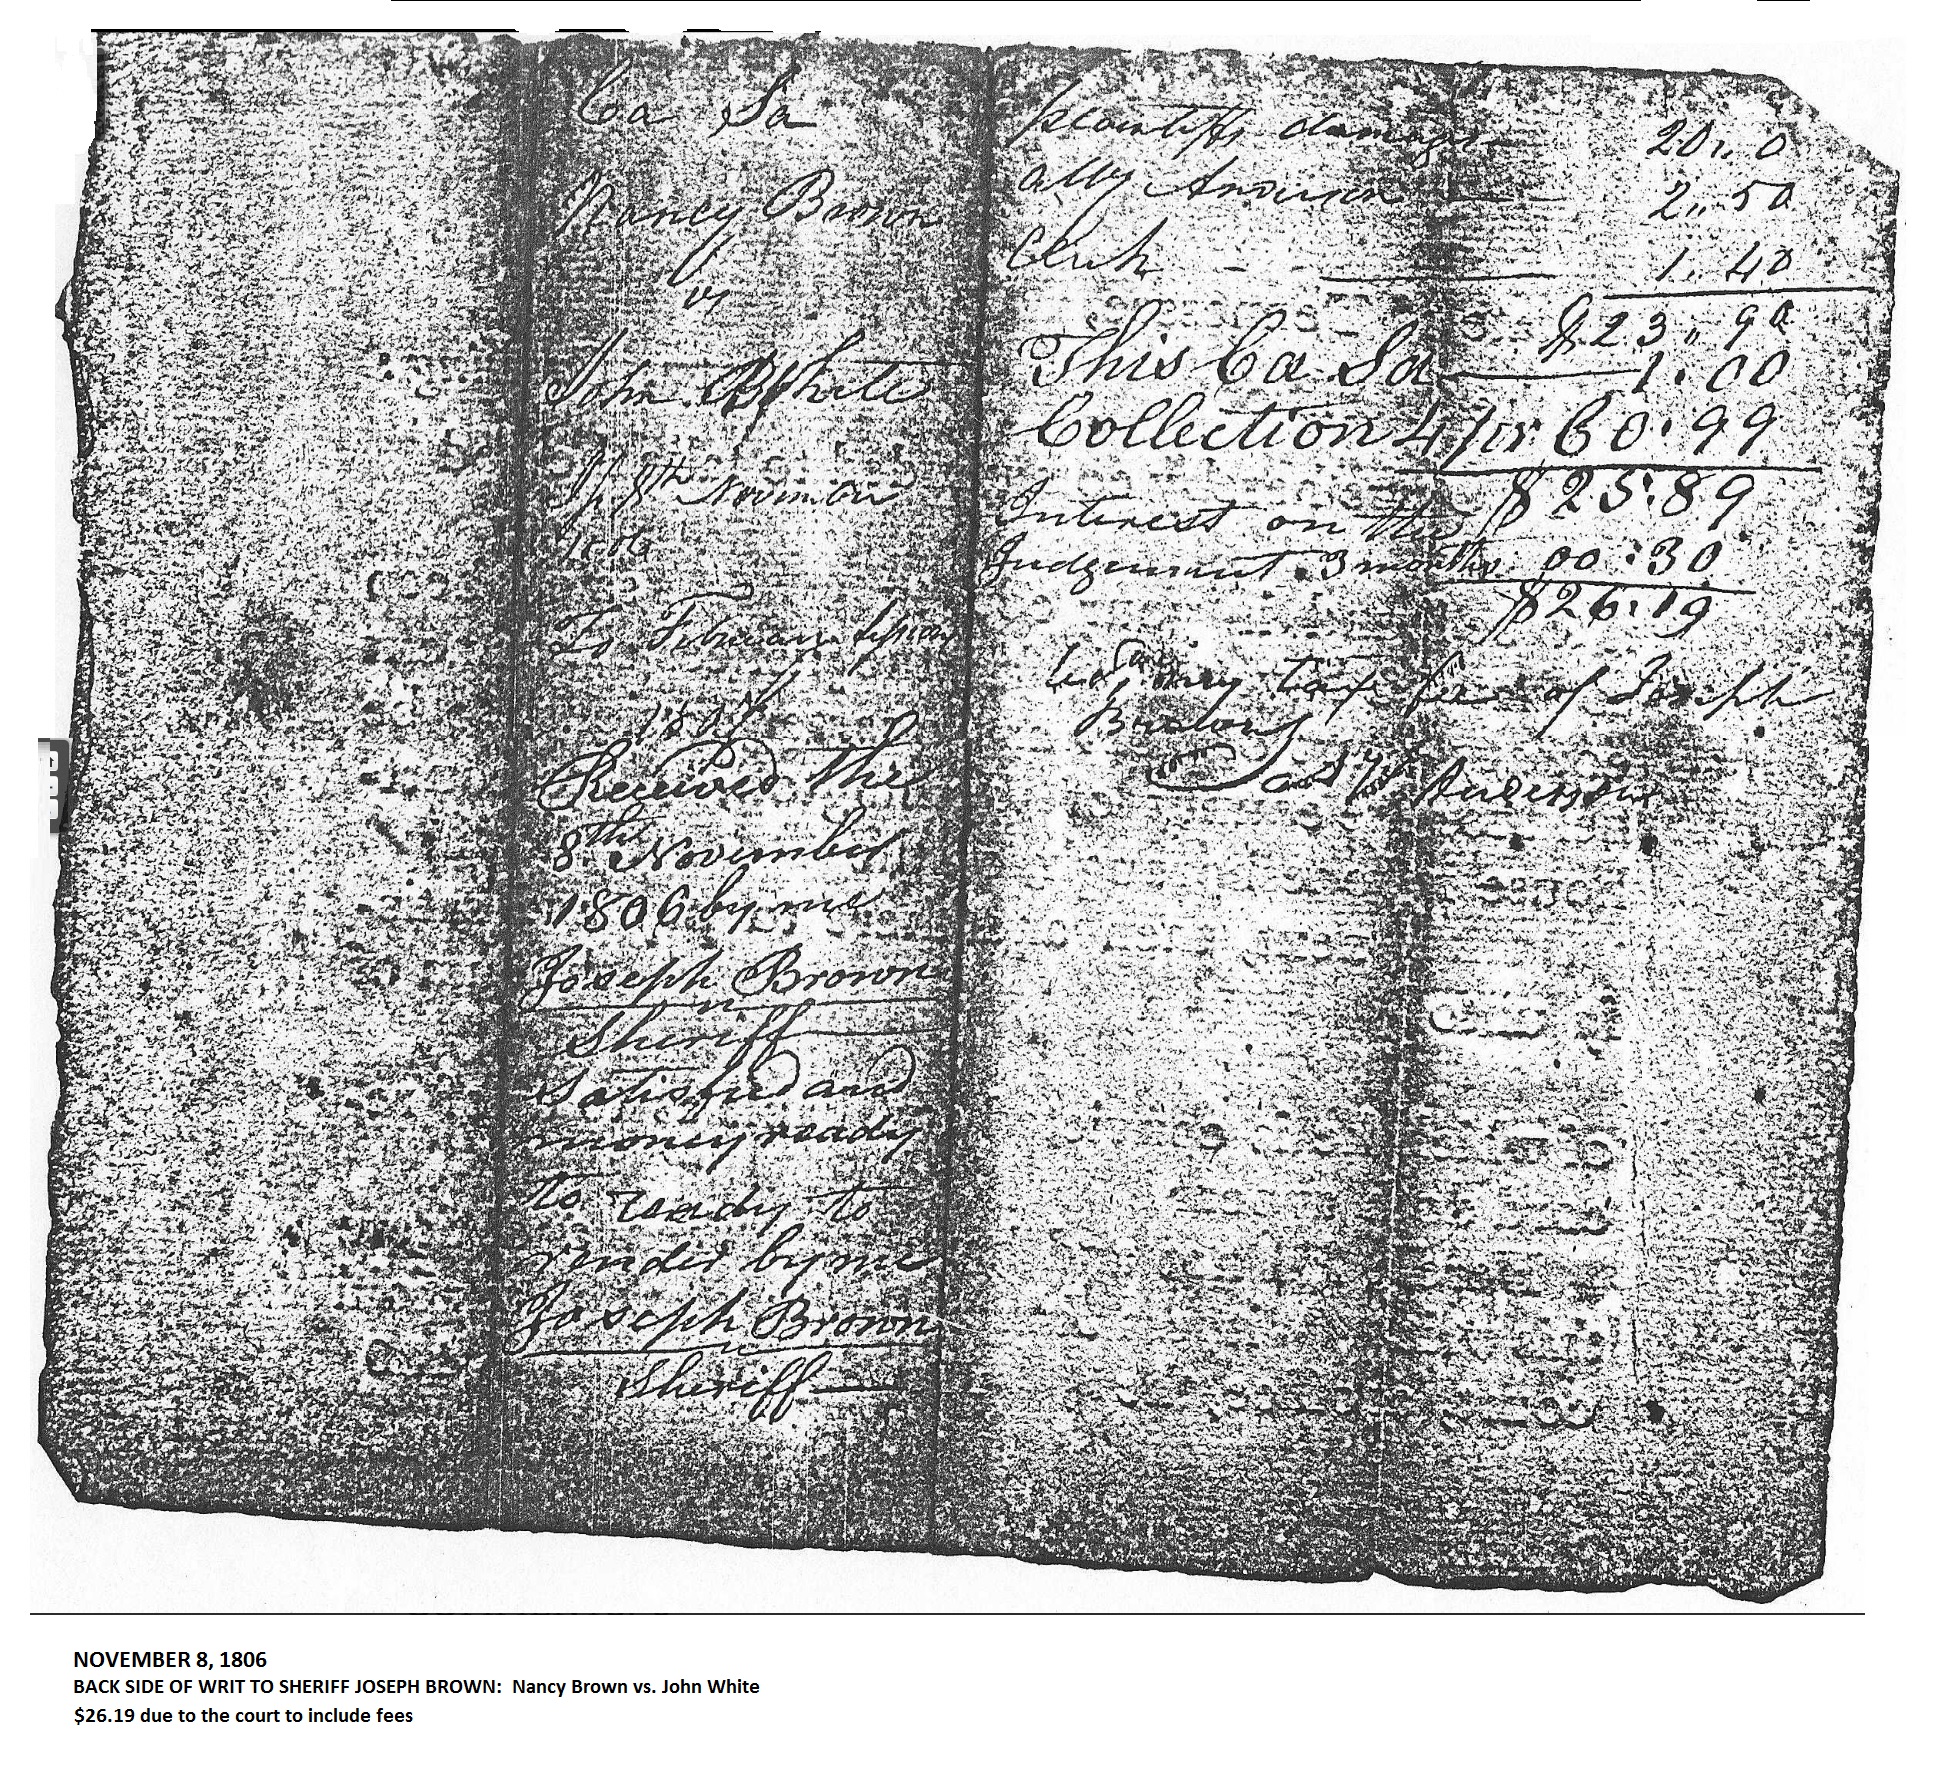 Ca Sa
Nancy Brown
vs
John White
8th November
1806
To February
1807
Received this
8th November
1806 by me
Joseph Brown
Sheriff
Satisfied and
money ready
to ready to
render by me
Joseph Brown
Sheriff
Plaintiffs damages 20,, 0
atty Anderson 2,, 50
Clerk 1. 40
$23,, 90
This Ca Sa 1. 00
Collection 4 pr C 0. 99
$25:89
Interest on this
Judgement 3 months. 00:30
$26:19
may take of Joseph
Anderson
NOVEMBER 8, 1806
BACK SIDE OF WRIT TO SHERIFF JOSEPH BROWN: Nancy Brown vs. John White
$26.19 due to the court to include fees